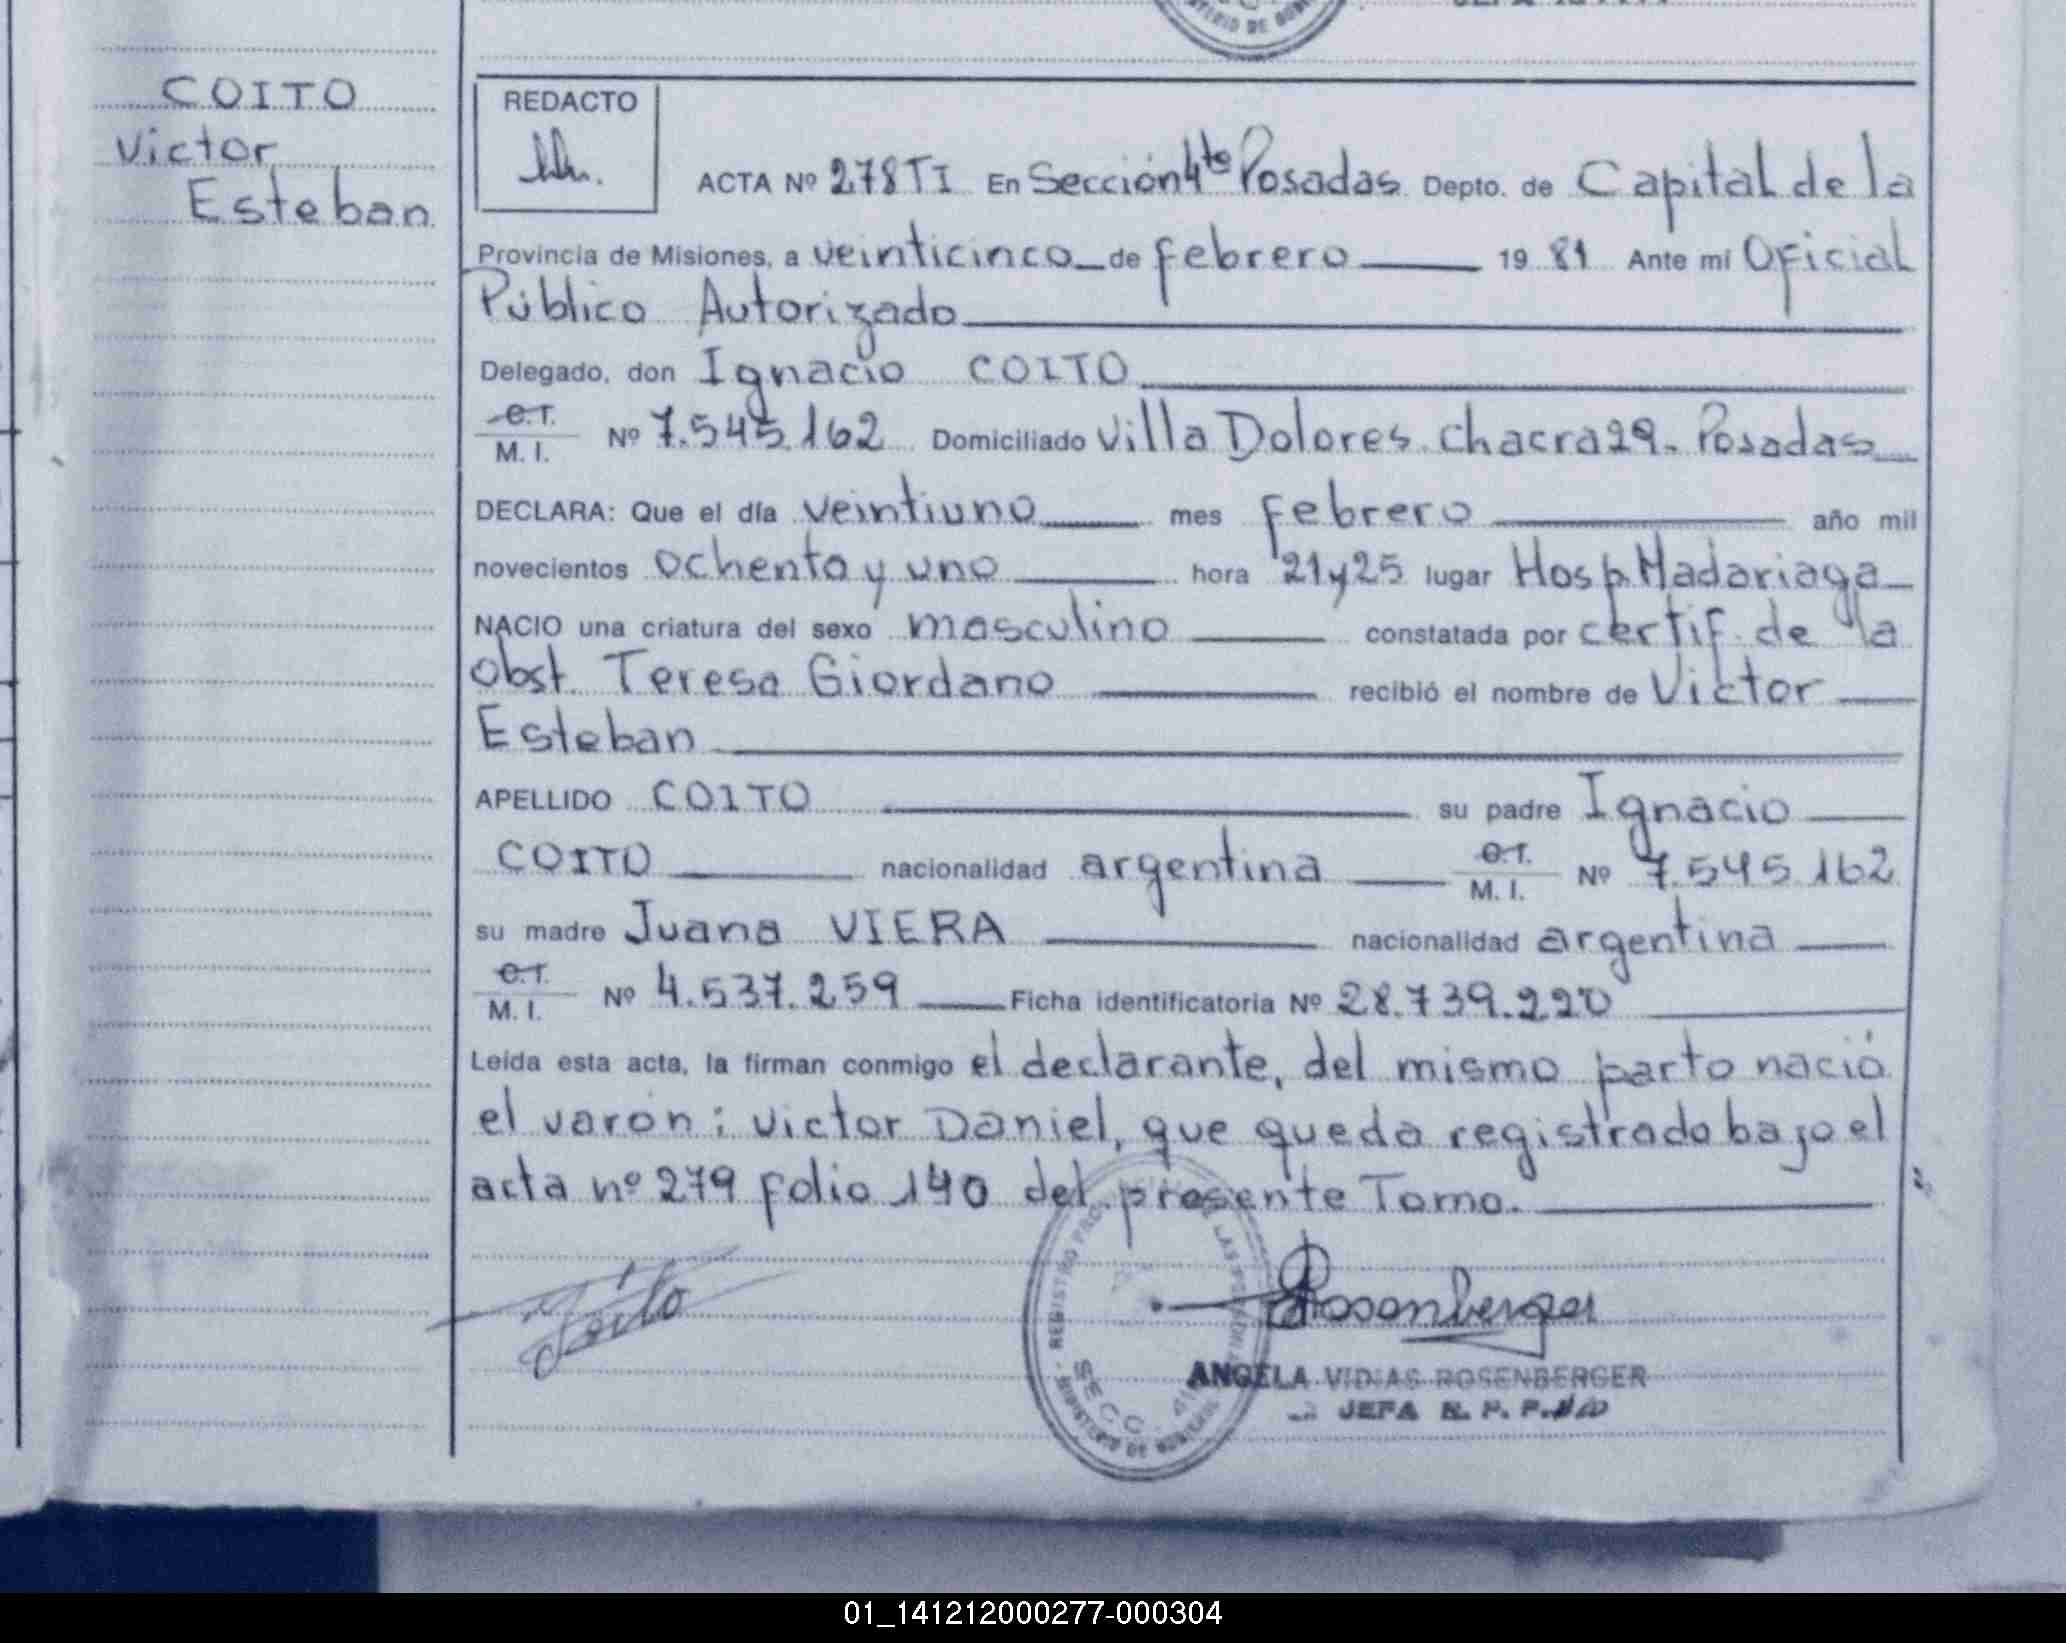 COITO
Victor
Esteban
REDACTO
ACTA Nº 278 TI En Sección 4ta Posadas Depto. de Capital de la
Provincia de Misiones, a veinticinco de febrero 19 81 Ante mi Oficial
Público Autorizado
Delegado, don Ignacio COITO
C.I.
M. I. Nº 7.545.162 Domiciliado Villa Dolores. chacra 29. Posadas
DECLARA: Que el día veintiuno mes febrero año mil
novecientos ochenta y uno hora 21 y 25 lugar Hosp. Madariaga
NACIO una criatura del sexo masculino constatada por certif. de la
obst. Teresa Giordano recibió el nombre de Victor
Esteban
APELLIDO COITO su padre Ignacio
COITO nacionalidad argentina C.I.
M. I. Nº 7.545.162
su madre Juana VIERA nacionalidad argentina
C.I.
M. I. Nº 4.537.259 Ficha identificatoria Nº 28.739.220
Leída esta acta, la firman conmigo el declarante, del mismo parto nació
el varón: Victor Daniel, que queda registrado bajo el
acta nº 279 folio 140 del presente Tomo.
Coito
Rosenberger
REGISTRO PROVINCIAL DE LAS PERSONAS
SECC. 4ta
MINISTERIO DE GOBIERNO
ANGELA VIDIAS ROSENBERGER
JEFA R. P. P.
01_141212000277-000304